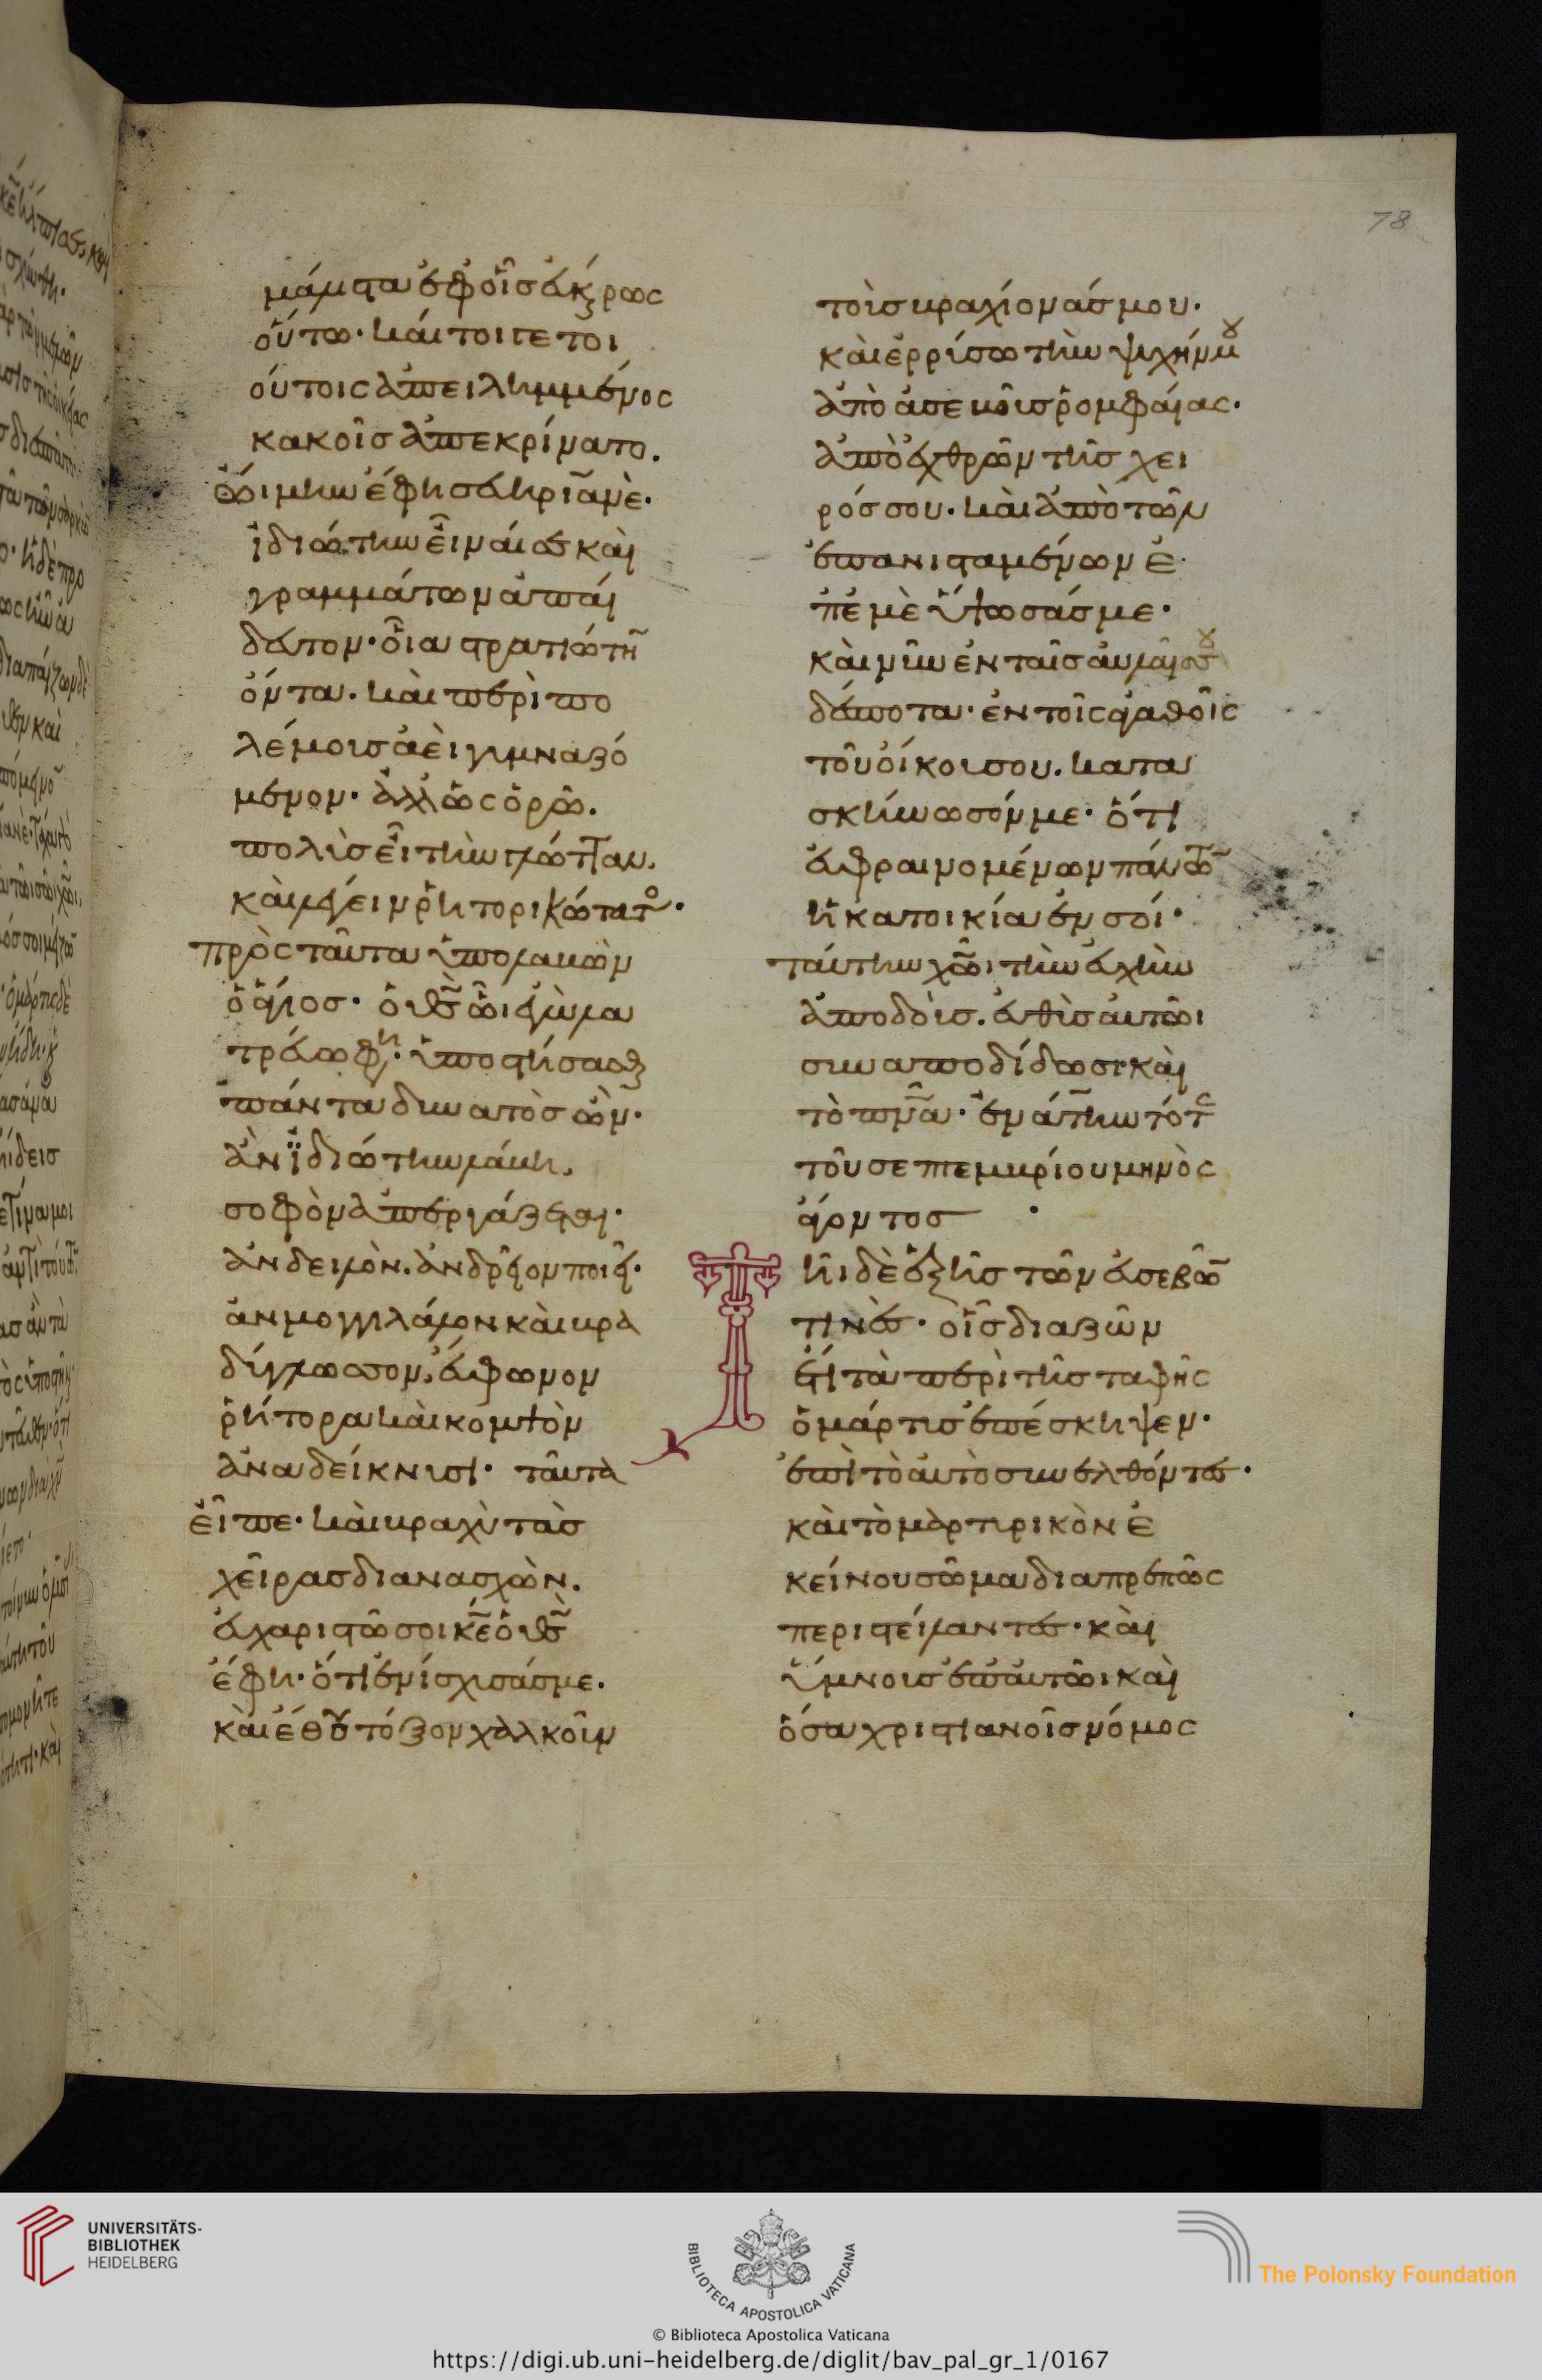 78
ἐφ οἷς
οὕτω· καί τοι τε τοι
ούτοις ἀπειλημμένος
κακοῖς ἀπεκρίνατο.
ὤιμην ἔφη σευηριανὲ·
ἰδιώτην εἶναί σε καὶ
γραμμάτων ἀπαί
δευτον· οἷα στρατιώτην
ὄντα. καὶ περὶ πο
λέμοις ἀεὶ γυμναζό
μενον· ἀλλ ὡς ὁρῶ.
πολὺς εἶ τὴν γλῶτταν.
καὶ λέγειν ῥητορικώτατος·
πρὸς ταῦτα ὑπολαβὼν
ὁ ἅγιος· ὁ θς ὧι ἐγὼ λα
τρεύω φη· ὑποστῆσαι
πάντα δυνατὸς ὢν·
ἂν ἰδιώτην λάβη.
σοφὸν ἀπεργάζεται·
ἂν δειλὸν. ἀνδρεῖον ποιεῖ·
ἂν μογγιλάλον καὶ βρα
δύγλωσσον. εὔφωνον
ῥήτορα καὶ κομψὸν
ἀναδείκνυσι· ταῦτα
εἶπε· καὶ βραχὺ τὰς
χεῖρας διανασχὼν.
εὐχαριστῶ σοι κε ὁ θς
ἔφη· ὅτι ἐνίσχυσάς με.
καὶ ἔθου τόξον χαλκοῦν
τοὺς βραχίονάς μου.
καὶ ἐρρύσω τὴν ψυχήν μου
ἀπὸ ἀσεβοῦς ῥομφαίας.
ἀπὸ ἐχθρῶν τῆς χει
ρός σου. καὶ ἀπὸ τῶν
ἐπανισταμένων ἐ
π ἐμὲ ὕψωσάς με·
καὶ νῦν ἐν ταῖς αὐλαῖς σου
δέσποτα· ἐν τοῖς ἀγαθοῖς
τοῦ οἴκου σου. κατα
σκήνωσόν με· ὅτι
εὐφραινομένων πάντων
ἡ κατοικία ἐν σοί·
ταύτην χῶι τὴν εὐχὴν
ἀποδοὺς. εὐθὺς αὐτῶι
συναποδίδωσι καὶ
τὸ πνα· ἐνάτην τότε
τοῦ σεπτεμβρίου μηνὸς
ἄγοντος ·
Τῆι δὲ ἑξῆς τῶν εὐσεβῶν
τινὲς· οἷς διαζῶν
ἔτι τὰ περὶ τῆς ταφῆς
ὁ μάρτυς ἐπέσκηψεν·
ἐπὶ τὸ αὐτὸ συνελθόντες·
καὶ τὸ μαρτυρικὸν ἐ
κείνου σῶμα διαπρεπῶς
περιστείλαντες· καὶ
ὕμνους ἐπ αὐτῶι καὶ
ὅσα χριστιανοῖς νόμος
UNIVERSITÄTS-
BIBLIOTHEK
HEIDELBERG
BIBLIOTECA APOSTOLICA VATICANA
The Polonsky Foundation
© Biblioteca Apostolica Vaticana
https://digi.ub.uni-heidelberg.de/diglit/bav_pal_gr_1/0167